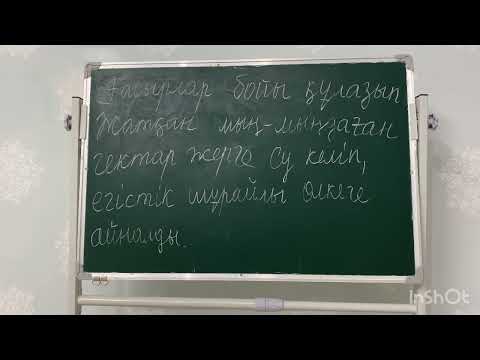 Ғасырлар бойы құлазып
жатқан мың-мыңдаған
гектар жерге су келіп,
егістік шұрайлы өлкеге
айналды.
inShOt